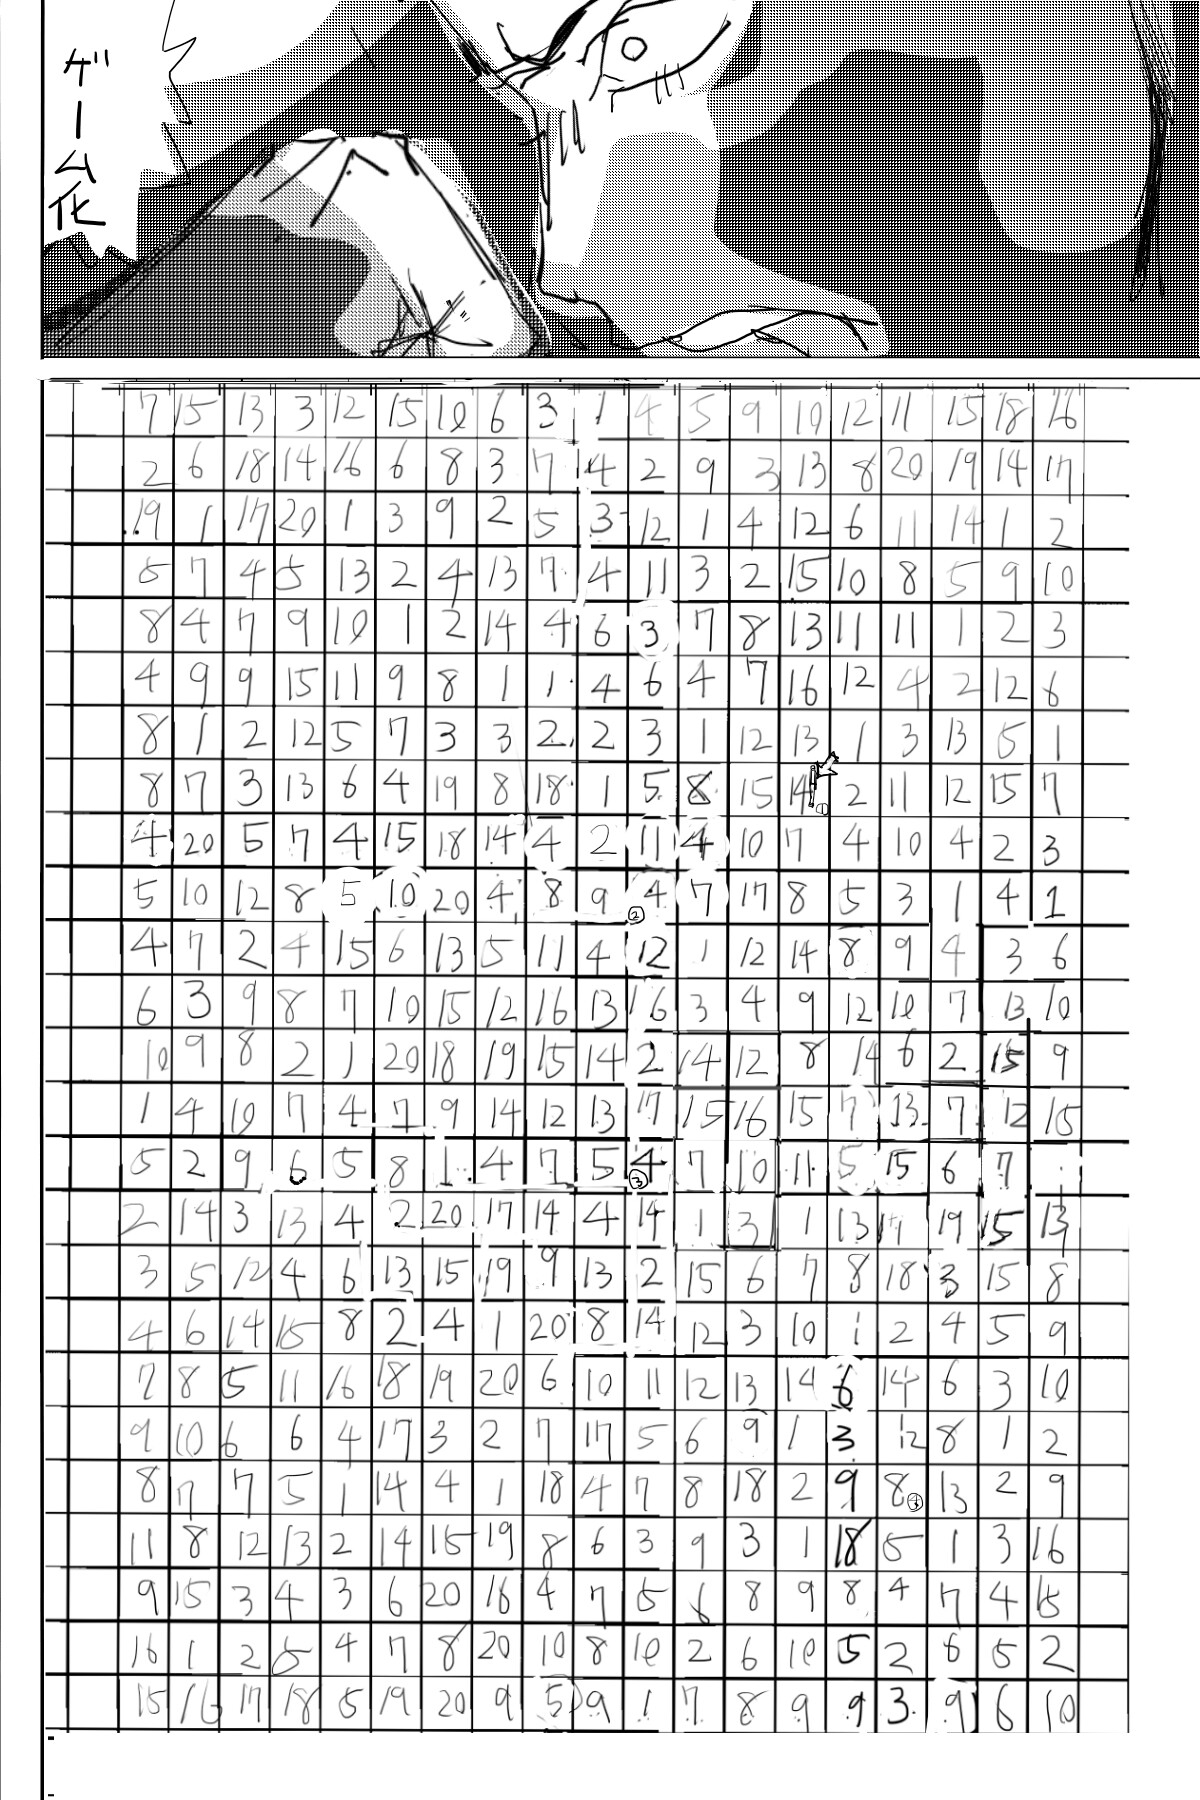 ゲーム化
7 15 13 3 12 15 10 6 3 1 4 5 9 10 12 11 15 18 16
2 6 18 14 16 6 8 3 7 4 2 9 3 13 8 20 19 14 17
19 1 17 20 1 3 9 2 5 3 12 1 4 12 6 11 14 1 2
5 7 4 5 13 2 4 13 7 4 11 3 2 15 10 8 5 9 10
8 4 7 9 10 1 2 14 4 6 3 7 8 13 11 11 1 2 3
4 9 9 15 11 9 8 1 1 4 6 4 7 16 12 4 2 12 6
8 1 2 12 5 7 3 3 2 2 3 1 12 13 1 3 13 5 1
8 7 3 13 6 4 19 8 18 1 5 8 15 14 ① 2 11 12 15 7
4 20 5 7 4 15 18 14 4 2 11 4 10 7 4 10 4 2 3
5 10 12 8 5 10 20 4 8 9 ② 4 7 17 8 5 3 1 4 1
4 7 2 4 15 6 13 5 11 4 12 1 12 14 8 9 4 3 6
6 3 9 8 7 10 15 12 16 13 16 3 4 9 12 10 7 13 10
10 9 8 2 1 20 18 19 15 14 2 14 12 8 14 6 2 15 9
1 4 10 7 4 7 9 14 12 13 17 15 16 15 7 13 7 12 15
5 2 9 6 5 8 1 4 7 5 4 ③ 7 10 11 5 15 6 7
2 14 3 13 4 2 20 17 14 4 14 1 3 1 13 17 19 15 13
3 5 12 4 6 13 15 19 9 13 2 15 6 7 8 18 3 15 8
4 6 14 15 8 2 4 1 20 8 14 12 3 10 1 2 4 5 9
7 8 5 11 16 18 19 20 6 10 11 12 13 14 6 14 6 3 10
9 10 6 6 4 17 3 2 7 17 5 6 9 1 3 12 8 1 2
8 7 7 5 1 14 4 1 18 4 7 8 18 2 9 8 ④ 13 2 9
11 8 12 13 2 14 15 19 8 6 3 9 3 1 18 5 1 3 16
9 15 3 4 3 6 20 16 4 7 5 6 8 9 8 4 7 4 15
16 1 2 5 4 7 8 20 10 8 10 2 6 10 5 2 6 5 2
15 16 17 18 5 19 20 9 5 9 1 7 8 9 9 3 9 6 10